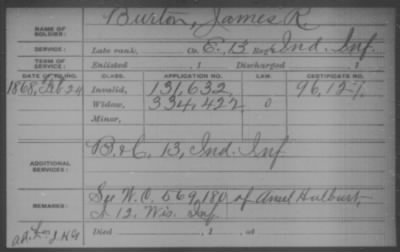 NAME OF SOLDIER: Burton, James R
SERVICE: Late rank, Co. E, 13 Reg't Ind. Inf.
TERM OF SERVICE: Enlisted , 1 Discharged , 1
DATE OF FILING. CLASS. APPLICATION NO. LAW. CERTIFICATE NO.
1868, Feb 24 Invalid, 131,632 96,127
Widow, 334,422 0
Minor,
ADDITIONAL SERVICES: B & C. 13, Ind. Inf
REMARKS: See W.C. 569,180 of Hulburt,
12, Wis. Inf.
Died , 1 , at